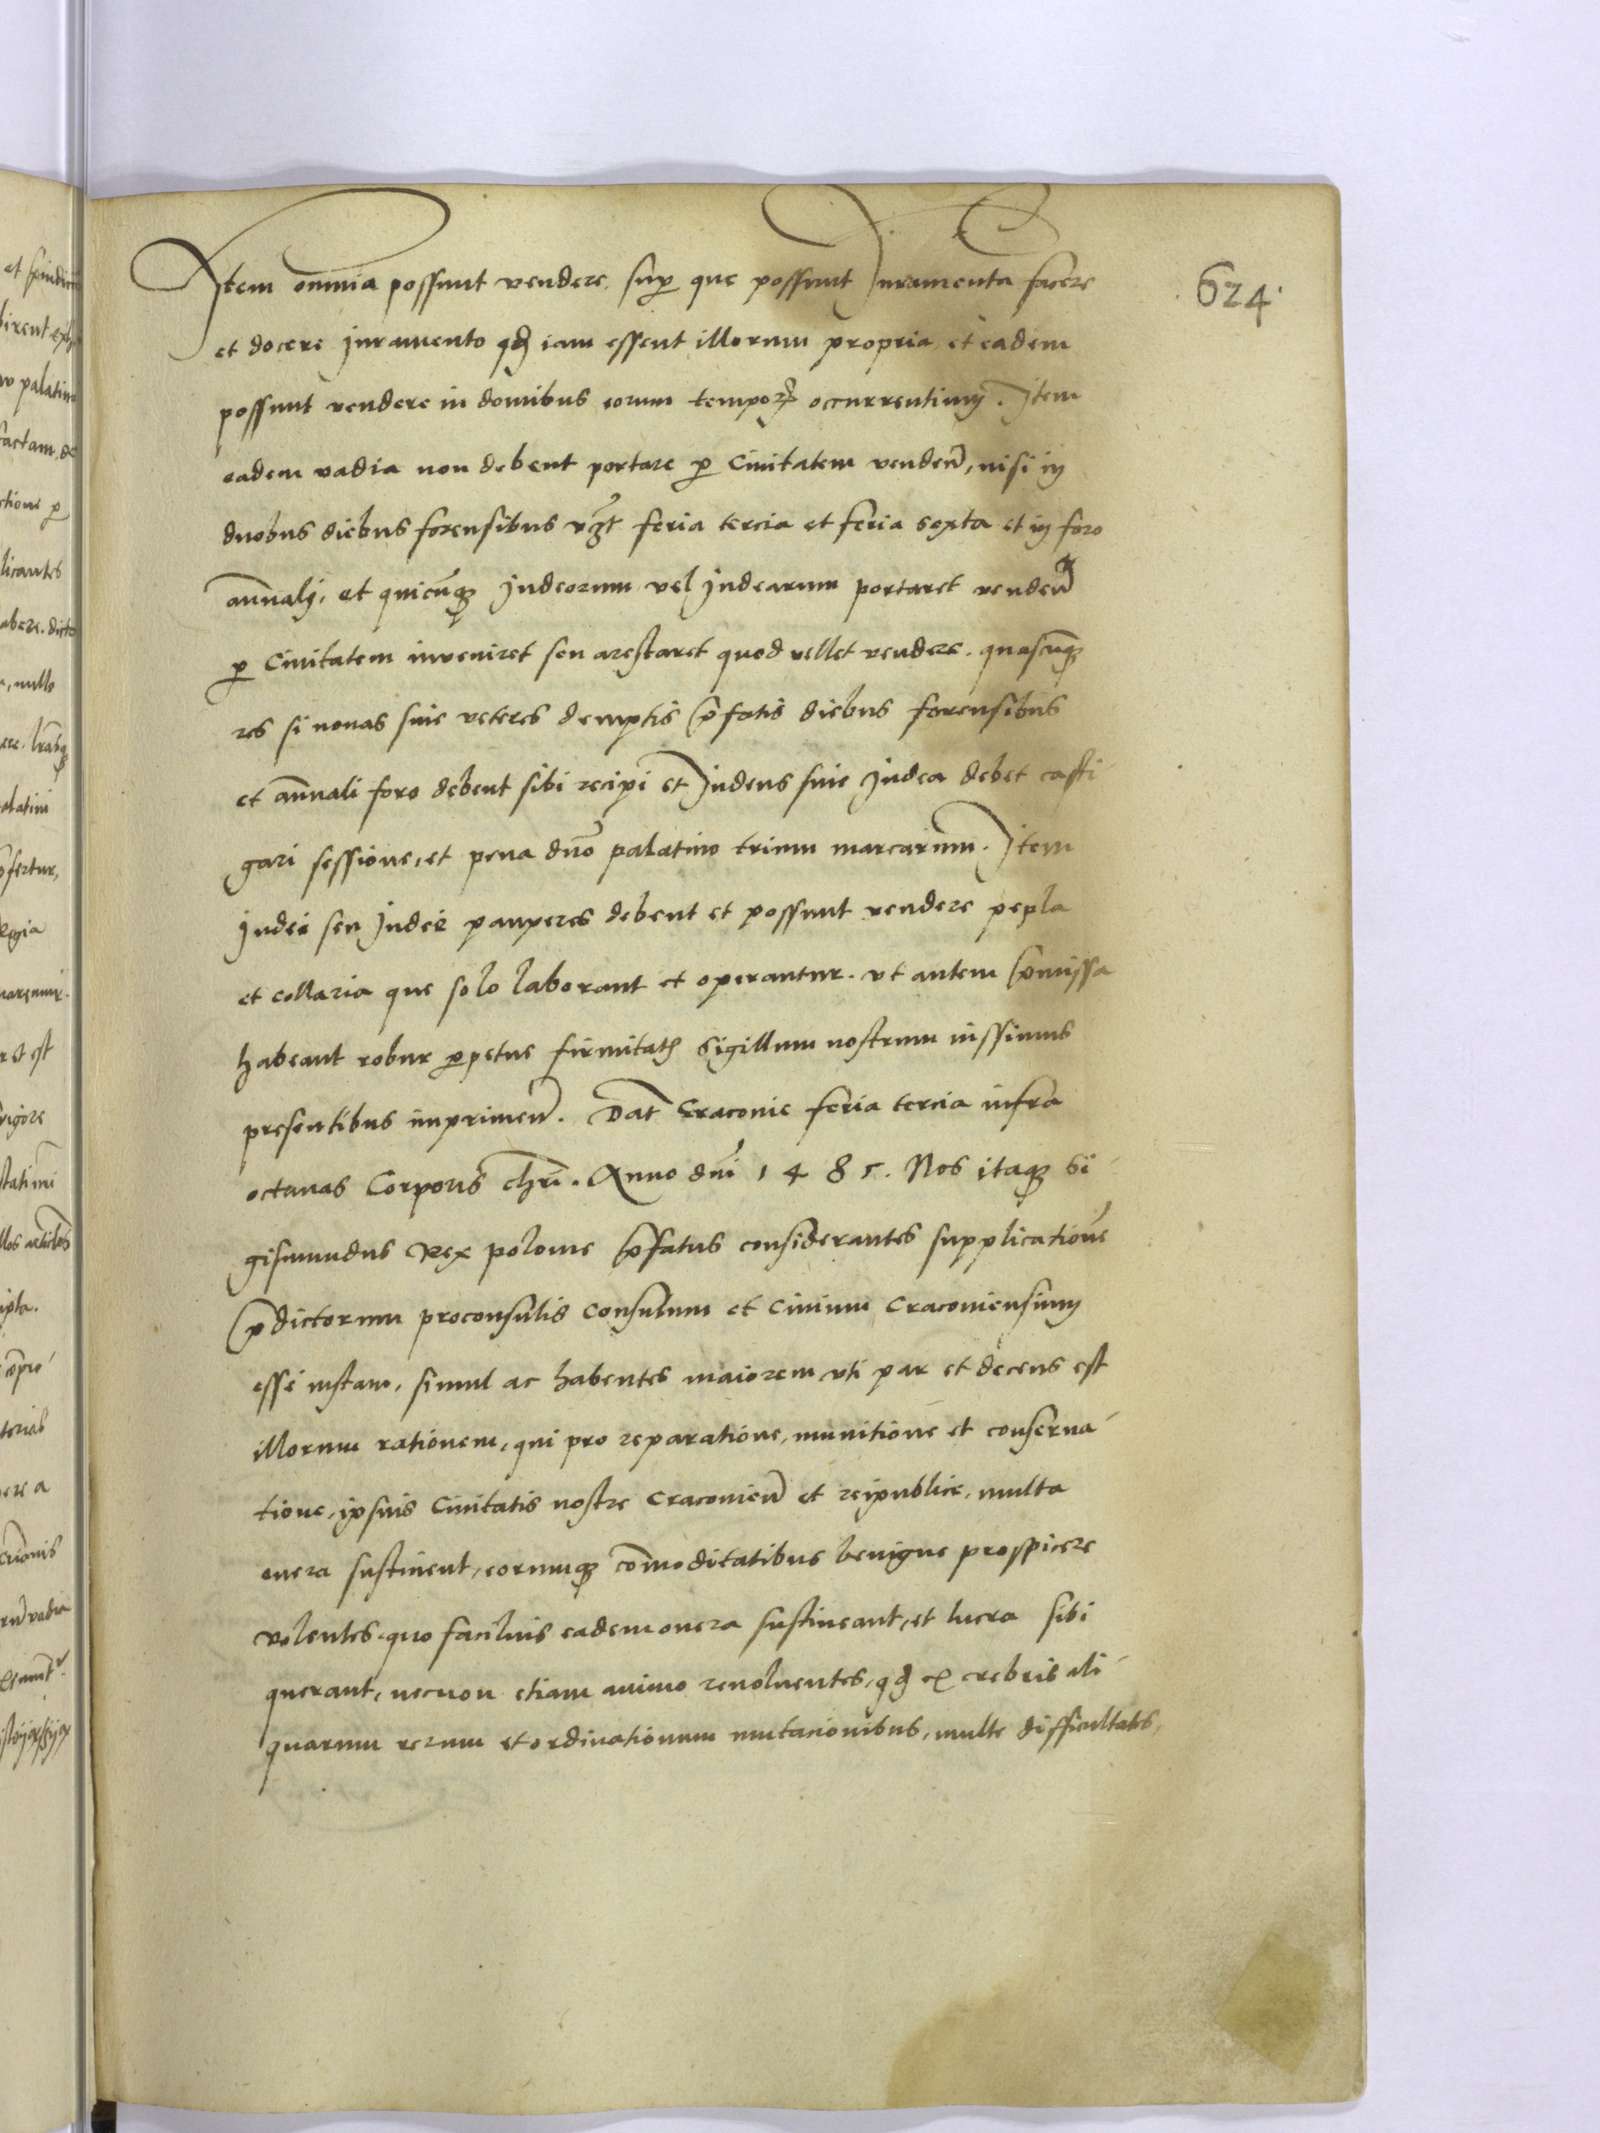 624.
Item omnia possunt vendere, sup que possunt Juramenta facere
et docere Juramento qd iam essent illorum propria et eadem
possunt vendere in domibus eorum tempor occurrentium. Item
eadem vadia non debent portare p Civitatem venden, nisi in
duobus diebus forensibus vz feria tercia et feria sexta et in foro
annali, et quicunq Judeorum vel Judearum portaret venden
p Civitatem inveniret seu arestaret quod vellet vendere. quascunq
res si novas sive veteres demptis pfatis diebus forensibus
et annali foro debent sibi recipi et Judeus sive Judea debet casti
gari sessione, et pena dno palatino trium marcarum. Item
Judei seu Judee pauperes debent et possunt vendere pepla
et collaria que solo laborant et operantur. vt autem pmissa
habeant robur ppetue firmitatis Sigillum nostrum iussimus
presentibus imprimen. Dat Cracovie feria tercia infra
octavas Corporis chri. Anno dni 1485. Nos itaq Si
gismundus Rex polonie pfatus considerantes supplicatione
pdictorum proconsulis Consulum et Civium Cracoviensium
esse iustam, simul ac habentes maiorem vti par et decens est
illorum rationem, qui pro reparatione, munitione et conserva
tione, ipsius Civitatis nostre Cracovien et reipublice, multa
onera sustinent, eorumq commoditatibus benigne prospicere
volentes quo facilius eadem onera sustineant, et lucra sibi
querant, necnon etiam animo revolventes, qd ex crebris ali
quarum rerum et ordinationum mutacionibus, multe difficultates,